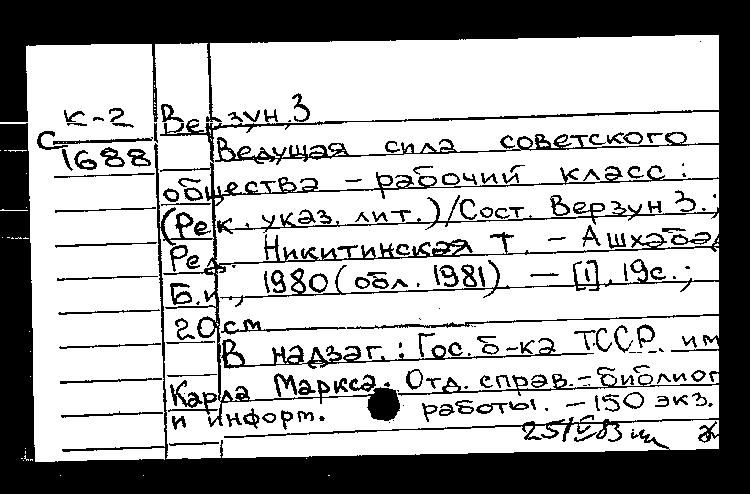 К-2
С 1688
Верзун, З
Ведущая сила советского
общества – рабочий класс :
(Рек. указ. лит.)/Сост. Верзун З.;
Ред. Никитинская Т. – Ашхабад
Б.и., 1980 (обл. 1981). – [1], 19с.;
20 см.
В надзаг. : Гос. б-ка ТССР. им
Карла Маркса. Отд. справ.-библиог
и информ. работы. – 150 экз.